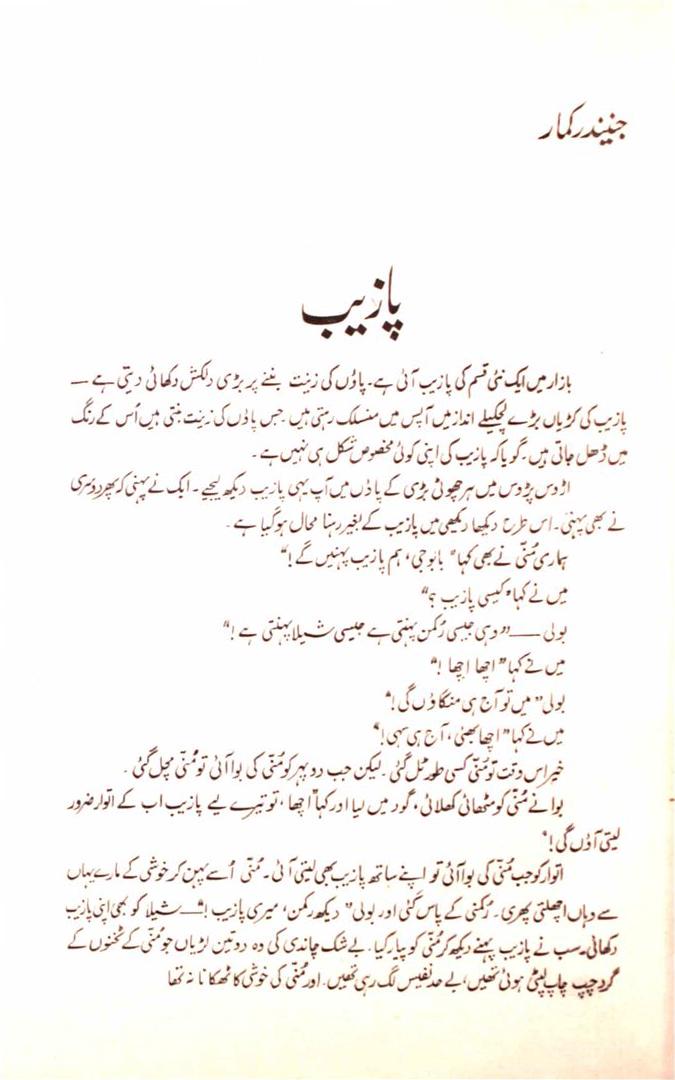 جنیندر کمار
پازیب
بازار میں ایک نئی قسم کی پازیب آئی ہے۔ پاؤں کی زینت بننے پر بڑی دلکش دکھائی دیتی ہے —
پازیب کی کڑیاں بڑے لچکیلے انداز میں آپس میں منسلک رہتی ہیں۔ جس پاؤں کی زینت بنتی ہیں اُس کے رنگ
میں ڈھل جاتی ہیں۔ گویا کہ پازیب کی اپنی کوئی مخصوص شکل ہی نہیں ہے۔
اڑوس پڑوس میں ہر چھوٹی بڑی کے پاؤں میں آپ یہی پازیب دیکھ لیجیے۔ ایک نے پہنی کہ پھر دوسری
نے بھی پہنی۔ اس طرح دیکھا دیکھی میں پازیب کے بغیر رہنا محال ہو گیا ہے۔
ہماری مُنّی نے بھی کہا "بابوجی، ہم پازیب پہنیں گے!"
میں نے کہا "کیسی پازیب؟"
بولی — "وہی جیسی رُکمن پہنتی ہے جیسی شیلا پہنتی ہے!"
میں نے کہا "اچھا اچھا!"
بولی "میں تو آج ہی منگاؤں گی!"
میں نے کہا "اچھا بھئی، آج ہی سہی!"
خیر اس وقت تو مُنّی کسی طور ٹل گئی۔ لیکن جب دوپہر کو مُنّی کی بوا آئی تو مُنّی مچل گئی۔
بوا نے مُنّی کو مٹھائی کھلائی، گود میں لیا اور کہا "اچھا، تو تیرے لیے پازیب اب کے اتوار ضرور
لیتی آؤں گی!"
اتوار کو جب مُنّی کی بوا آئی تو اپنے ساتھ پازیب بھی لیتی آئی۔ مُنّی اُسے پہن کر خوشی کے مارے یہاں
سے وہاں اچھلتی پھری۔ رُکمنی کے پاس گئی اور بولی "دیکھ رکمن، میری پازیب!" — شیلا کو بھی اپنی پازیب
دکھائی۔ سب نے پازیب پہنے دیکھ کر مُنّی کو پیار کیا۔ بے شک چاندی کی وہ دو تین لڑیاں جو مُنّی کے ٹخنوں کے
گرد چپ چاپ لپٹی ہوئی تھیں، بے حد نفیس لگ رہی تھیں۔ اور مُنّی کی خوشی کا ٹھکانا نہ تھا